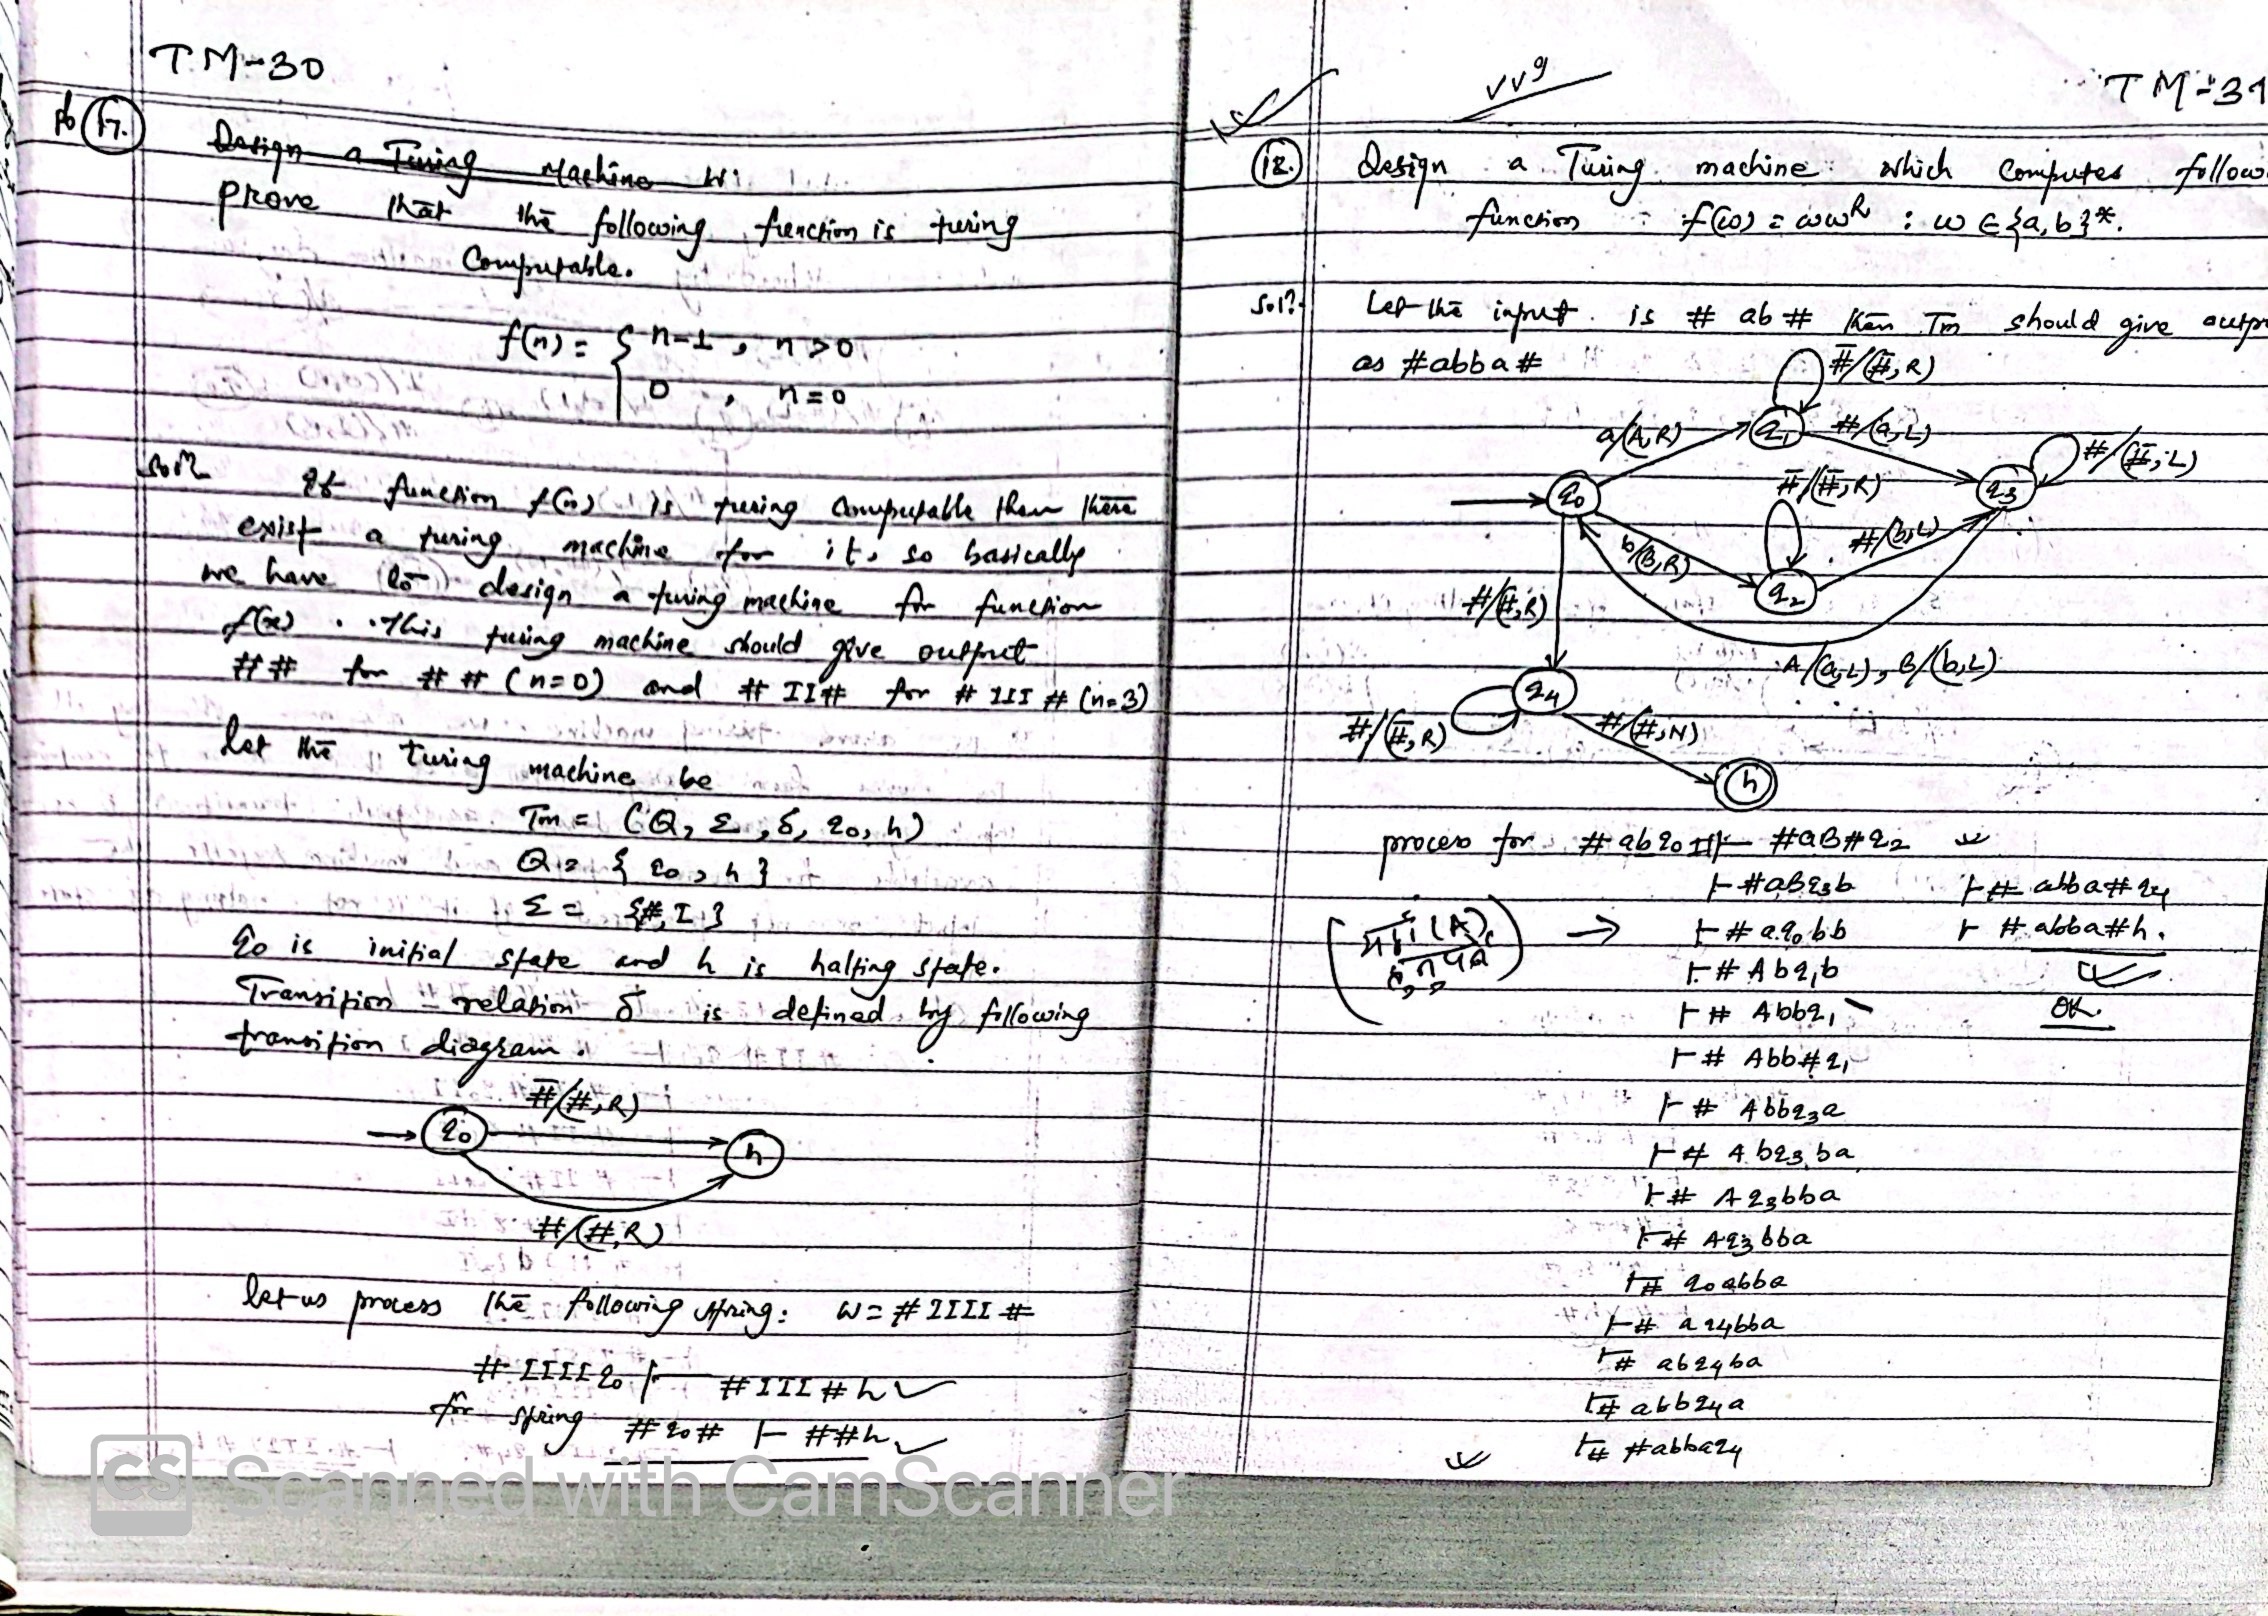 TM-30
17.
Design a Turing Machine
prove that the following function is turing
Computable.
f(n) = { n-1 , n>0
0 , n=0
If function f(n) is turing computable then there
exist a turing machine for it, so basically
we have to design a turing machine for function
f(x) . This turing machine should give output
## for ## (n=0) and #II# for #III# (n=3)
let the turing machine be
Tm = (Q, Σ, δ, q0, h)
Q = { q0, h }
Σ = {#, I}
q0 is initial state and h is halting state.
Transition - relation δ is defined by following
transition diagram.
#̅/(#, R)
q0
h
#/(#, R)
let us process the following string: w = #IIII#
#IIIIq0 ⊢ #III#h
for string #q0# ⊢ ##h
TM-31
18. Design a Turing machine which computes
function : f(w) = wwR : w ∈ {a, b}*.
Let the input is #ab# then Tm should give
as #abba#
#̅/(#̅, R)
a/(A, R) q1 #/(a, L)
#̅/(#̅, L)
q0 #̅/(#̅, R) q3
b/(B, R) #/(b, L)
q2
#/(#, R)
A/(a, L), B/(b, L)
q4
#̅/(#̅, R)
#/(#, N)
h
process for #abq0 ⊢ #aB#q2
⊢ #aBq3b
⊢ #aq0bb
⊢ #Abq1b
⊢ #Abbq1
⊢ #Abb#q1
⊢ #Abbq3a
⊢ #Abq3ba
⊢ #Aq3bba
⊢ #Aq3bba
⊢ #q0abba
⊢ #aq4bba
⊢ #abq4ba
⊢ #abbq4a
⊢ #abbaq4
⊢ #abba#q4
⊢ #abba#h.
OK.
CS Scanned with CamScanner